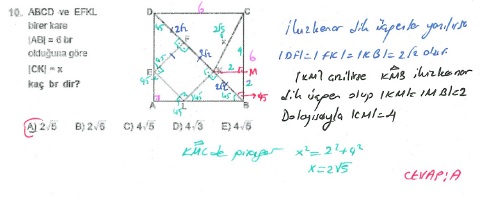 10. ABCD ve EFKL
birer kare
|AB| = 6 br
olduğuna göre
|CK| = x
kaç br dir?
A) 2√5 B) 2√6 C) 4√5 D) 4√3 E) 4√5
D
6
C
45
2√2
F
2√5
4
6
2√2
E
45
K
M
2
2
2√2
45
45
A
L
B
45
İkizkenar dik üçgenler yazılırsa
|DF|=|FK|=|KB|=2√2 olur.
|KM| çizilirse KMB ikizkenar
dik üçgen olup |KM|=|MB|=2
Dolayısıyla |KM|=4
KMC de pisagor x²=2²+4²
x=2√5
CEVAP:A